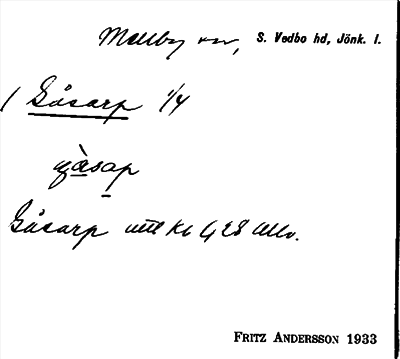 Mellby sn, S. Vedbo hd, Jönk. l.
1 Gåsarp 1/4
Gåsarp utt kb 4,28 Allv.
FRITZ ANDERSSON 1933